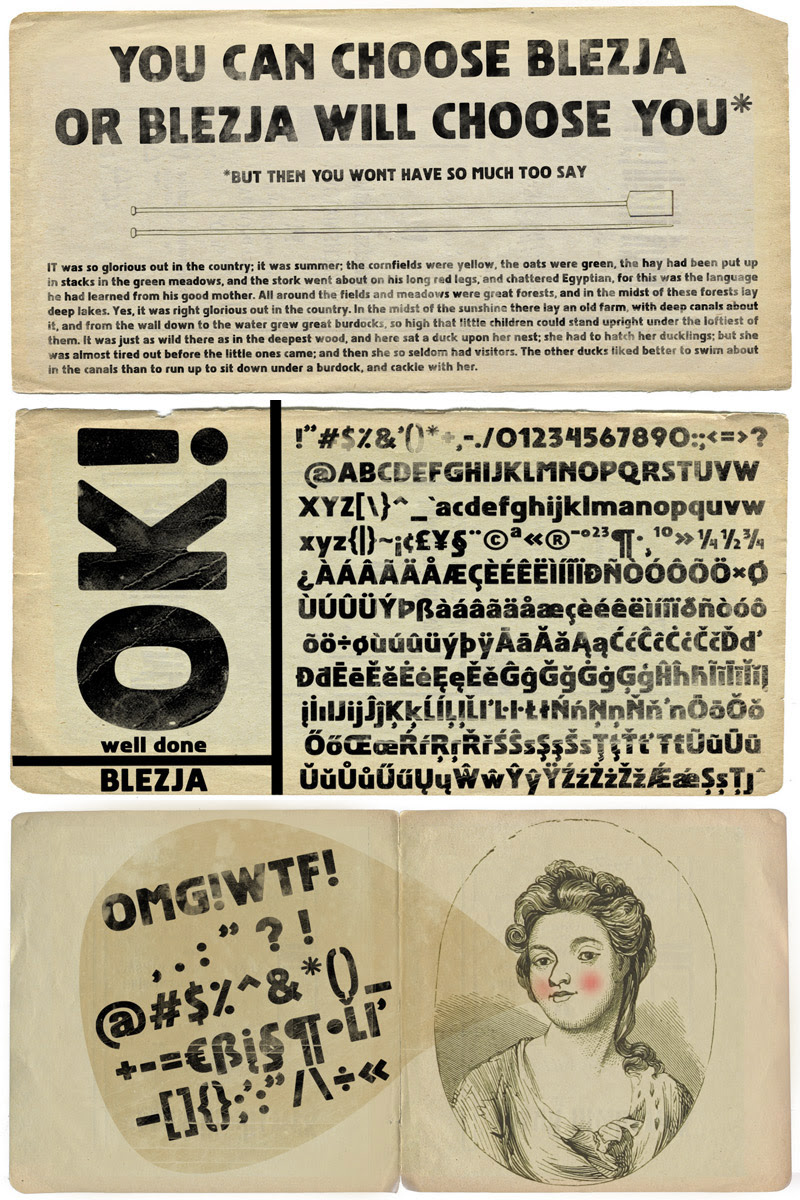 YOU CAN CHOOSE BLEZJA
OR BLEZJA WILL CHOOSE YOU*
*BUT THEN YOU WONT HAVE SO MUCH TOO SAY
IT was so glorious out in the country; it was summer; the cornfields were yellow, the oats were green, the hay had been put up
in stacks in the green meadows, and the stork went about on his long red legs, and chattered Egyptian, for this was the language
he had learned from his good mother. All around the fields and meadows were great forests, and in the midst of these forests lay
deep lakes. Yes, it was right glorious out in the country. In the midst of the sunshine there lay an old farm, with deep canals about
it, and from the wall down to the water grew great burdocks, so high that little children could stand upright under the loftiest of
them. It was just as wild there as in the deepest wood, and here sat a duck upon her nest; she had to hatch her ducklings; but she
was almost tired out before the little ones came; and then she so seldom had visitors. The other ducks liked better to swim about
in the canals than to run up to sit down under a burdock, and cackle with her.
OK!
well done
BLEZJA
!"#$%&'()*+,-./0123456789O:;<=>?
@ABCDEFGHIJKLMNOPQRSTUVW
XYZ[\}^_`acdefghijklmanopquvw
xyz{|}~¡¢£¥§¨©ª«®¯°²³¶·¸¹º»¼½¾
¿ÀÁÂÃÄÅÆÇÈÉÊËÌÍÎÏÐÑÒÓÔÕÖ×Ø
ÙÚÛÜÝÞßàáâãäåæçèéêëìíîïðñòóô
õö÷øùúûüýþÿĀāĂăĄąĆćĈĉĊċČčĎď
ĐđĒēĔĕĖėĘęĚěĜĝĞğĠġĢģĤĥĦħĨĩĪīĬĭĮ
įİıĲĳĴĵĶķĹĺĻļĽľĿŀŁłŃńŅņŇňŉŌōŎŏ
ŐőŒœŔŕŖŗŘřŚŝŞşŠšŢţŤťŦŧŨũŪū
ŬŭŮůŰűŲųŴŵŶŷŸŹźŻżŽžǼǽȘșȚț^
OMG!WTF!
,.:"?!
@#$%^&*()_
+-=€ßį§¶•Ŀľ
–[]{};':"/\÷«